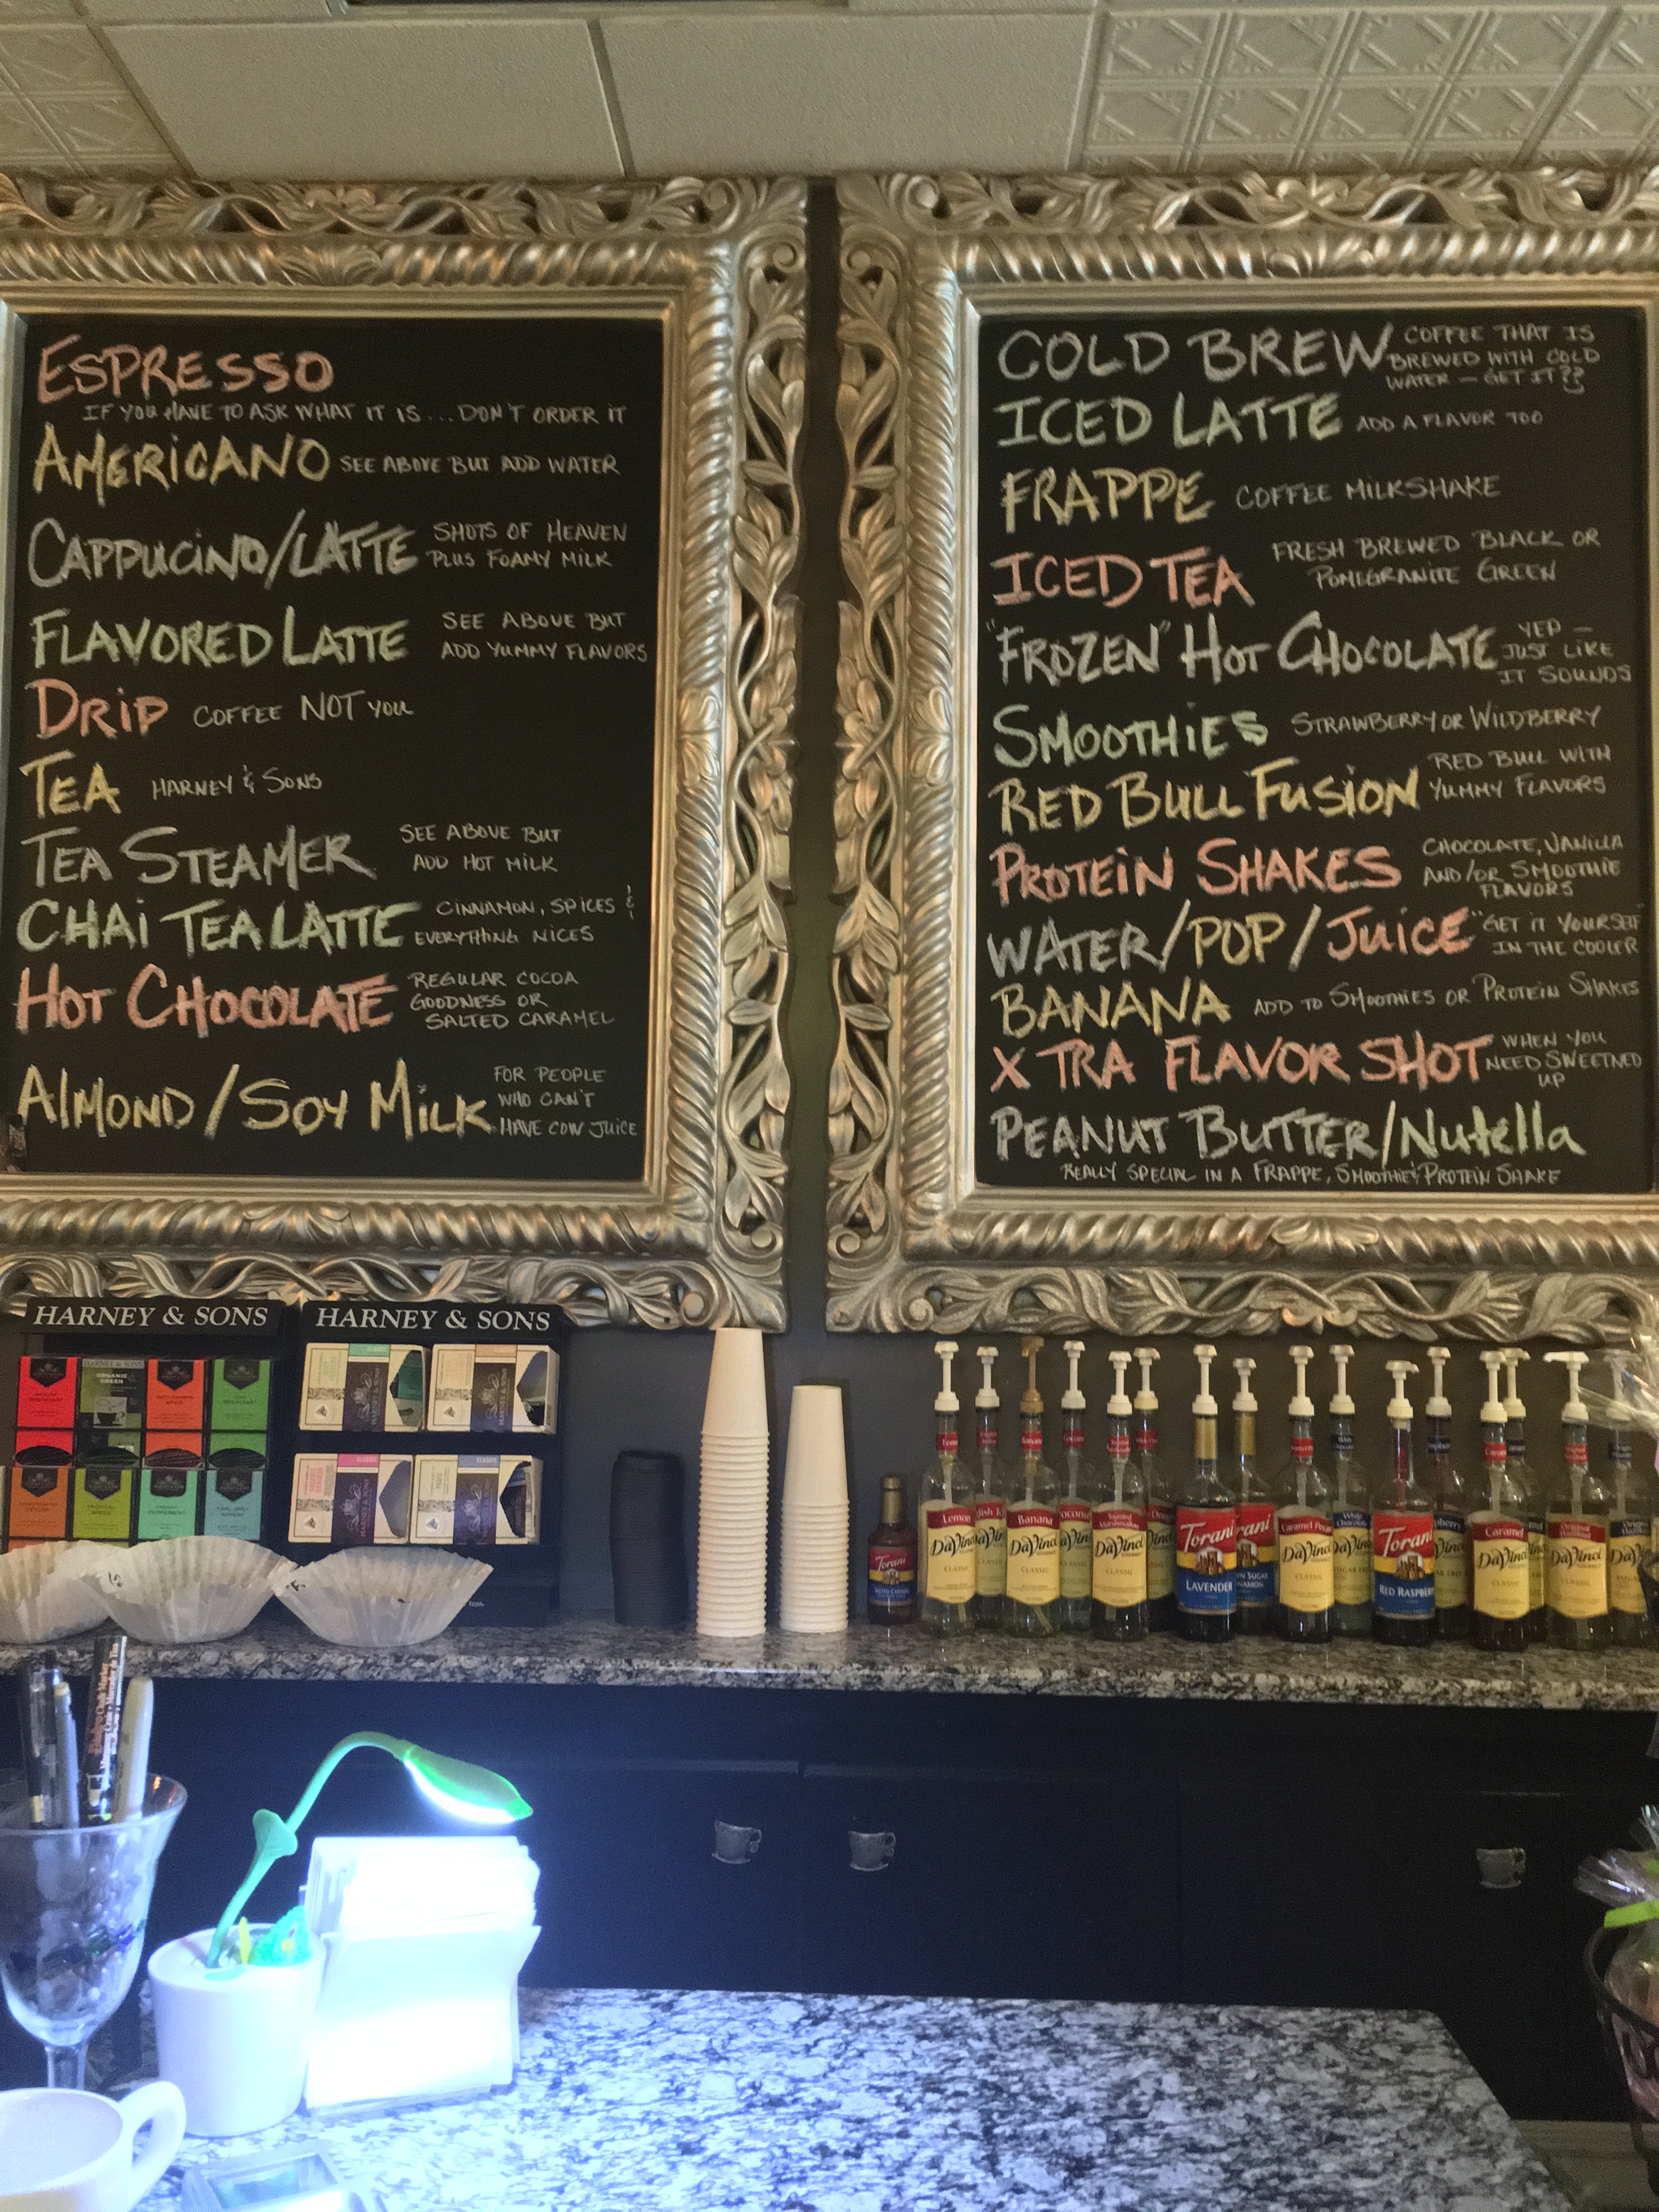 ESPRESSO
IF YOU HAVE TO ASK WHAT IT IS... DON'T ORDER IT
AMERICANO SEE ABOVE BUT ADD WATER
CAPPUCINO/LATTE SHOTS OF HEAVEN
PLUS FOAMY MILK
FLAVORED LATTE SEE ABOVE BUT
ADD YUMMY FLAVORS
DRIP COFFEE NOT YOU
TEA HARNEY & SONS
TEA STEAMER SEE ABOVE BUT
ADD HOT MILK
CHAI TEA LATTE CINNAMON, SPICES &
EVERYTHING NICES
HOT CHOCOLATE REGULAR COCOA
GOODNESS OR
SALTED CARAMEL
ALMOND/SOY MILK FOR PEOPLE
WHO CAN'T
HAVE COW JUICE
COLD BREW COFFEE THAT IS
BREWED WITH COLD
WATER — GET IT??
ICED LATTE ADD A FLAVOR TOO
FRAPPE COFFEE MILKSHAKE
ICED TEA FRESH BREWED BLACK OR
POMEGRANITE GREEN
"FROZEN" HOT CHOCOLATE YEP —
JUST LIKE
IT SOUNDS
SMOOTHIES STRAWBERRY OR WILDBERRY
RED BULL FUSION RED BULL WITH
YUMMY FLAVORS
PROTEIN SHAKES CHOCOLATE, VANILLA
AND/OR SMOOTHIE
FLAVORS
WATER/POP/JUICE "GET IT YOURSELF"
IN THE COOLER
BANANA ADD TO SMOOTHIES OR PROTEIN SHAKES
X TRA FLAVOR SHOT WHEN YOU
NEED SWEETNED
UP
PEANUT BUTTER/Nutella
REALLY SPECIAL IN A FRAPPE, SMOOTHIE & PROTEIN SHAKE
HARNEY & SONS
HARNEY & SONS
ORGANIC
GREEN
Torani
Lemon
DaVinci
CLASSIC
Banana
DaVinci
CLASSIC
Toasted
Marshmallow
DaVinci
CLASSIC
Torani
LAVENDER
Caramel Pecan
DaVinci
CLASSIC
White
Chocolate
DaVinci
Torani
RED RASPBERRY
Caramel
DaVinci
CLASSIC
DaVinci
CLASSIC